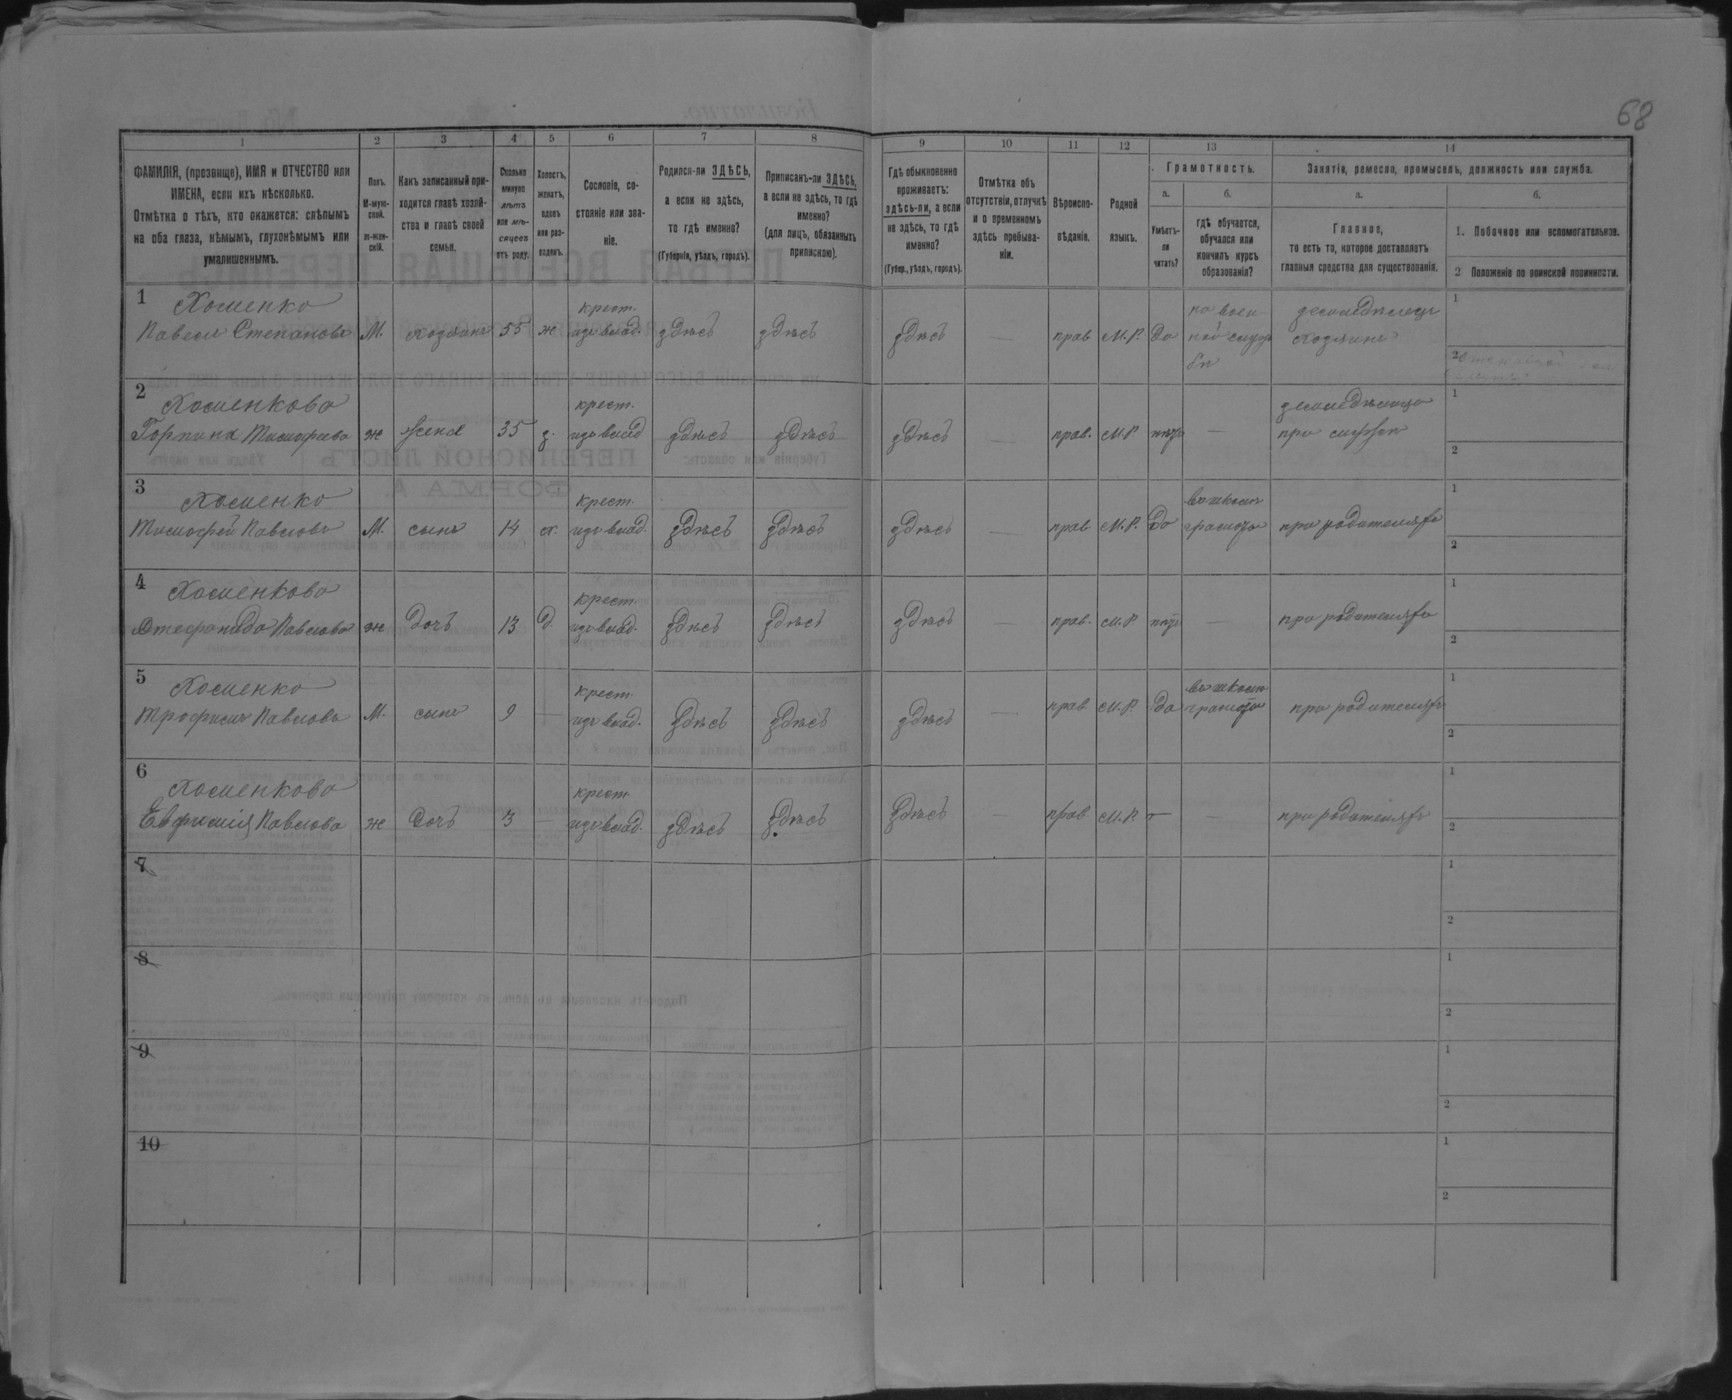 68
1 2 3 4 5 6 7 8 9 10 11 12 13 14
ФАМИЛІЯ, (прозвище), ИМЯ и ОТЧЕСТВО или
ИМЕНА, если ихъ нѣсколько.
Отмѣтка о тѣхъ, кто окажется: слѣпымъ
на оба глаза, нѣмымъ, глухонѣмымъ или
умалишеннымъ.
Полъ.
М-муж-
ской.
ж-жен-
скій.
Какъ записанный при-
ходится главѣ хозяй-
ства и главѣ своей
семьи.
Сколько
минуло
лѣтъ
или мѣ-
сяцевъ
отъ роду.
Холостъ,
женатъ,
вдовъ
или раз-
веденъ.
Сословіе, со-
стояніе или зва-
ніе.
Родился-ли ЗДѢСЬ,
а если не здѣсь,
то гдѣ именно?
(Губернія, уѣздъ, городъ).
Приписанъ-ли ЗДѢСЬ,
а если не здѣсь, то гдѣ
именно?
(для лицъ, обязанныхъ
припискою).
Гдѣ обыкновенно
проживаетъ:
здѣсь-ли, а если
не здѣсь, то гдѣ
именно?
(Губер., уѣздъ, городъ).
Отмѣтка объ
отсутствіи, отлучкѣ
и о временномъ
здѣсь пребыва-
ніи.
Вѣроиспо-
вѣданіе.
Родной
языкъ.
Грамотность.
а.
Умѣетъ-
ли
читать?
б.
гдѣ обучается,
обучался или
кончилъ курсъ
образованія?
Занятіе, ремесло, промыселъ, должность или служба.
а.
Главное,
то есть то, которое доставляетъ
главныя средства для существованія.
б.
1. Побочное или вспомогательное.
2 Положеніе по воинской повинности.
1 Хоменко
Павелъ Степановъ М. хозяинъ 55 ж крест. изъ влад. здѣсь здѣсь здѣсь — прав М.Р. Да по воен
ной служ
бѣ
земледѣлецъ
хозяинъ
1
2
2 Хоменкова
Горпина Тимофеева ж жена 35 з. крест. изъ влад здѣсь здѣсь здѣсь — прав. М.Р. нѣтъ — земледѣлица
при мужѣ
1
2
3 Хоменко
Тимофей Павловъ М. сынъ 14 х. крест. изъ влад. здѣсь здѣсь здѣсь — прав М.Р. Да въ школѣ
грамоты
при родителяхъ
1
2
4 Хоменкова
Стефанида Павлова ж дочь 13 д. крест. изъ влад. здѣсь здѣсь здѣсь — прав. М.Р. нѣтъ — при родителяхъ
1
2
5 Хоменко
Трофимъ Павловъ М. сынъ 9 — крест изъ влад. здѣсь здѣсь здѣсь — прав М.Р. Да въ школѣ
грамоты
при родителяхъ
1
2
6 Хоменкова
Евфимія Павлова ж дочь 3 — крест изъ влад. здѣсь здѣсь здѣсь — прав М.Р — — при родителяхъ
1
2
7
1
2
8
1
2
9
1
2
10
1
2